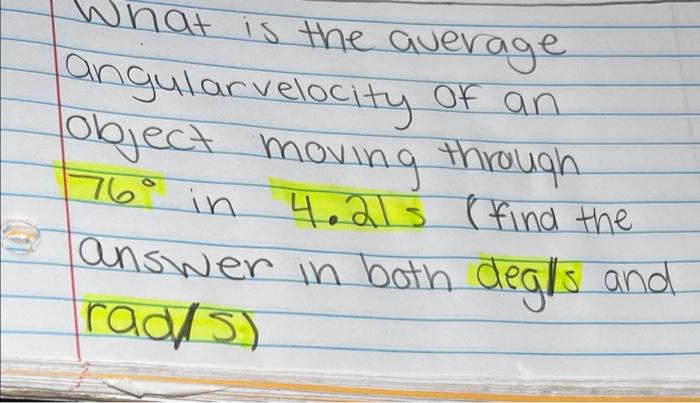 What is the average
angular velocity of an
object moving through
76° in 4.21s (find the
answer in both deg/s and
rad/s)